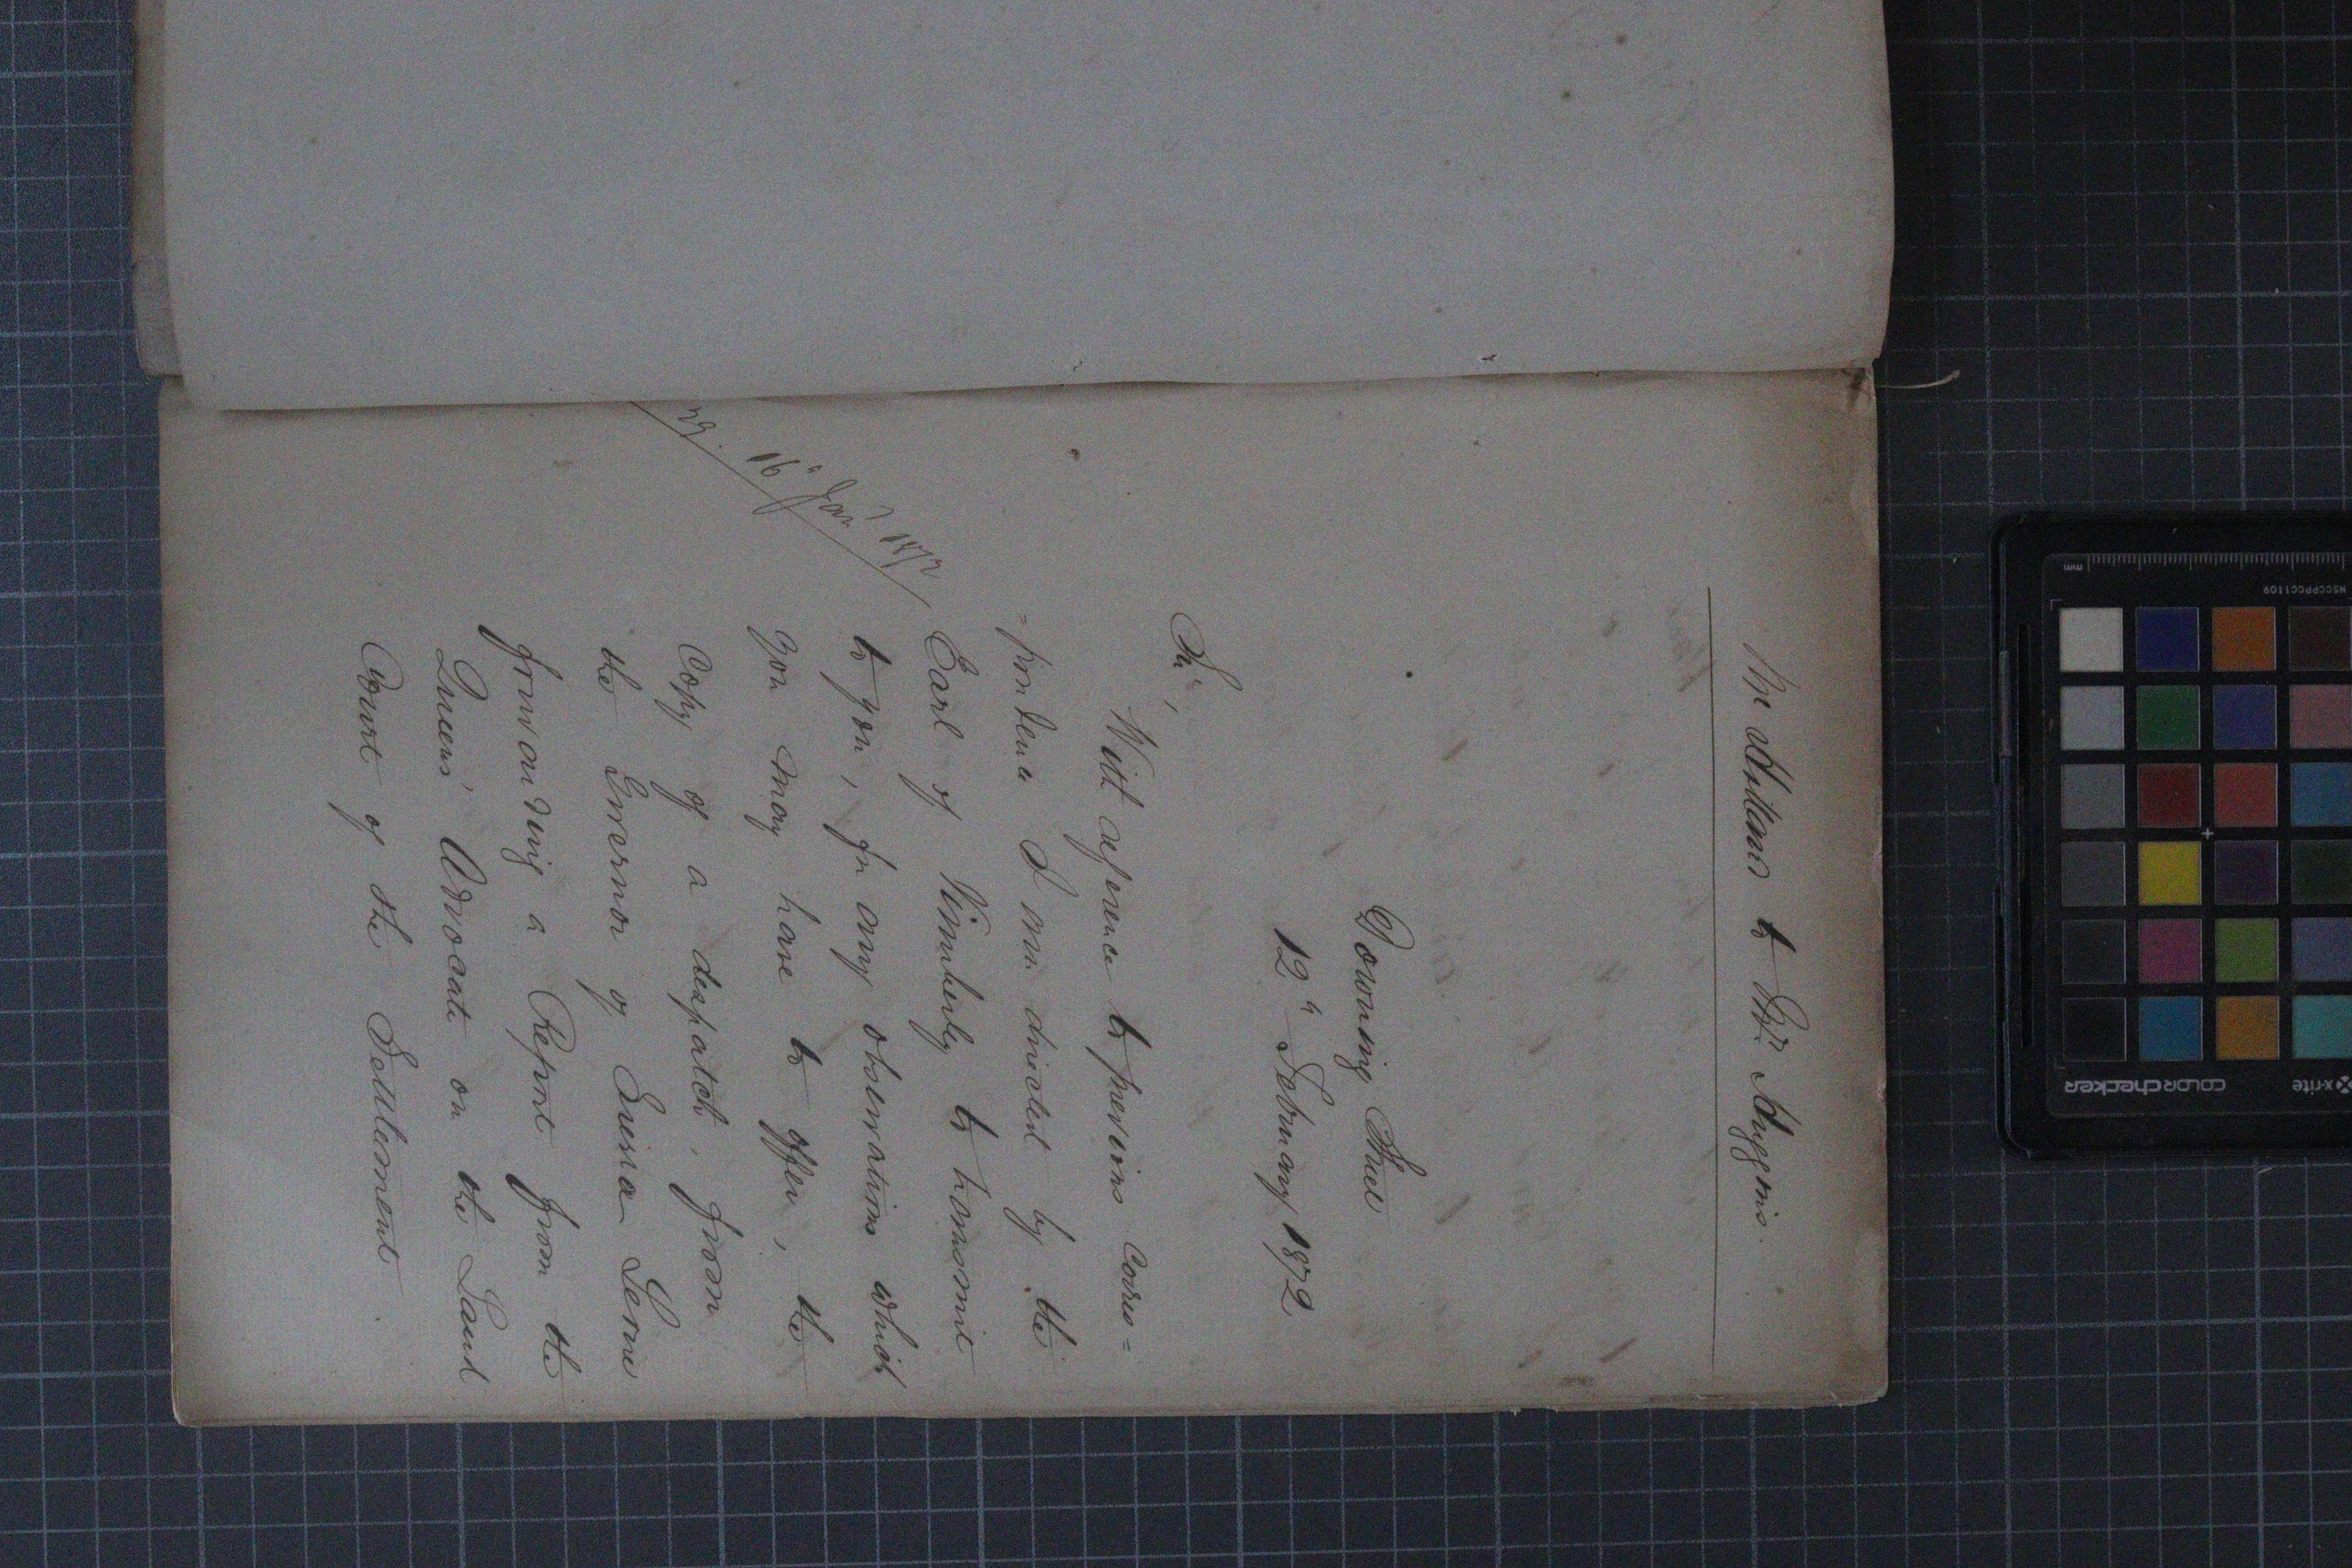 Mr Holland to Mr Huggins.
Downing Street
12th February 1872
Sir,
With reference to previous corres=
=pondence I am directed by the
Earl of Kimberly to transmit
to you, for any observations which
you may have to offer, the
Copy of a despatch, from
the Governor of Sierra Leone
forwarding a Report from the
Queens' Advocate on the Land
Court of the Settlement.
16th Jany 1872
x-rite
colorchecker
MSCCPPCC1109
mm